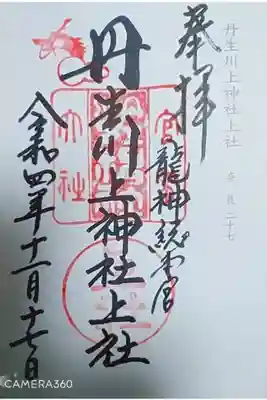 丹生川上神社上社
奈良二十七
奉拝
龍神総本宮
丹生川上神社上社
令和四年十一月十七日
官
大社
CAMERA360